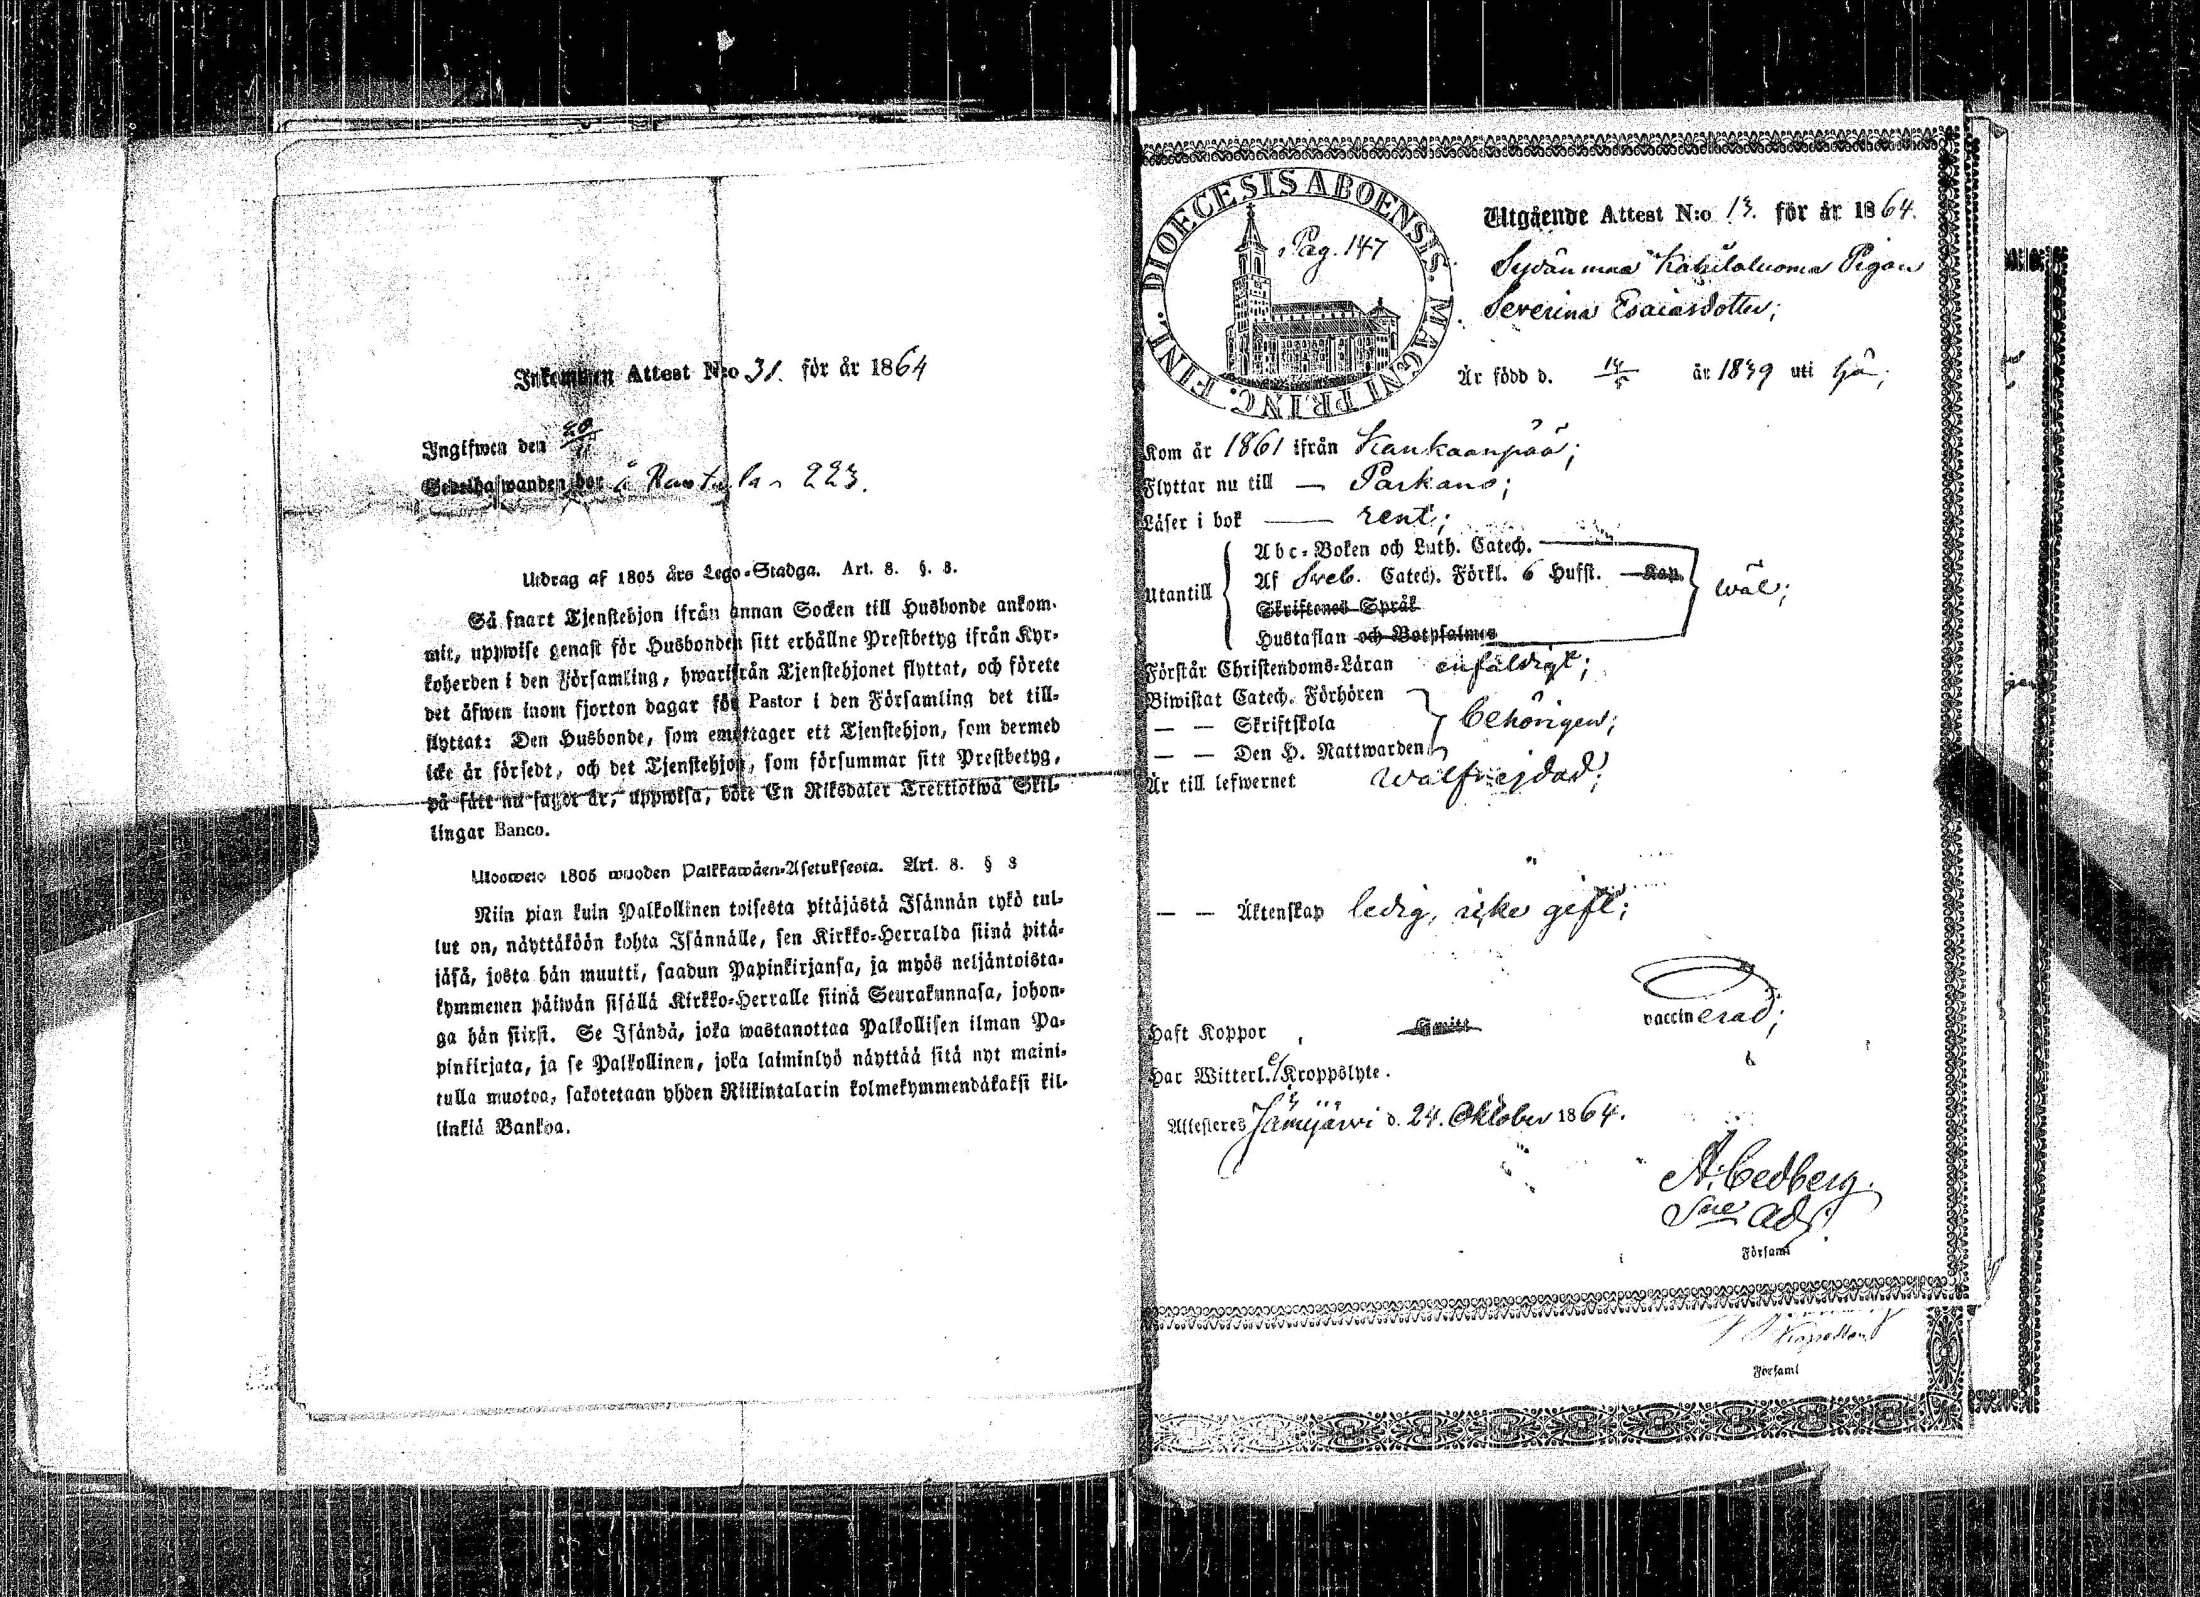 Inkommen Attest N:o 31. för år 1864
Ingifwen den 20
Sedelhafwanden bor å 223.
Utdrag af 1805 års Lego-Stadga. Art. 8. §. 8.
Så snart Tjenstehjon ifrån annan Socken till Husbonde ankom-
mit, uppwise genast för Husbonden sitt erhållne Prestbetyg ifrån Kyr-
koherden i den Församling, hwarifrån Tjenstehjonet flyttat, och förete
det äfwen inom fjorton dagar för Pastor i den Församling det till-
flyttat: Den Husbonde, som emottager ett Tjenstehjon, som dermed
icke är försedt, och det Tjenstehjon, som försummar sitt Prestbetyg,
på sätt nu sagdt är, uppwisa, böte En Riksdaler Trettiotwå Skil-
lingar Banco.
Ulosweto 1805 wuoden Palkkawäen-Asetuksesta. Art. 8. § 8
Niin pian kuin Palkollinen toisesta pitäjästä Isännän tykö tul-
lut on, näyttäköön kohta Isännälle, sen Kirkko-Herralda siinä pitä-
jäsä, josta hän muutti, saadun Papinkirjansa, ja myös neljäntoista-
kymmenen päiwän sisällä Kirkko-Herralle siinä Seurakunnasa, johon-
ga hän siirsi. Se Isändä, joka wastanottaa Palkollisen ilman Pa-
pinkirjata, ja se Palkollinen, joka laiminlyö näyttää sitä nyt maini-
tulla muotoa, sakotetaan yhden Riikintalarin kolmekymmendäkaksi kil-
linkiä Bankoa.
DIOECESIS ABOENSIS. MAGNI PRINC. FINL.
Pag. 147
Utgående Attest N:o 13. för år 1864.
Sydänmaa Kahilaluoma Pigan
Severina Esaiasdotter;
Är född d. år 1839 uti
Kom år 1861 ifrån Kankaanpää;
Flyttar nu till — Parkano;
Läser i bok — rent;
Utantill
Abc-Boken och Luth. Catech.
Af Sveb. Catech. Förkl. 6 Hufst. — Kap.
Skriftenes Språk
Hustaflan och Botpsalmes
wäl;
Förstår Christendoms-Läran enfaldigt;
Biwistat Catech. Förhören
— — Skriftskola
— — Den H. Nattwarden
behörigen;
Är till lefwernet wälfrejdad;
— — Äktenskap ledig, icke gift;
Haft Koppor
vaccinerad;
Har Witterl. Kroppslyte.
Attesteres Jämijärvi d. 24. Oktober 1864.
A. Cedberg.
Församl
Församl